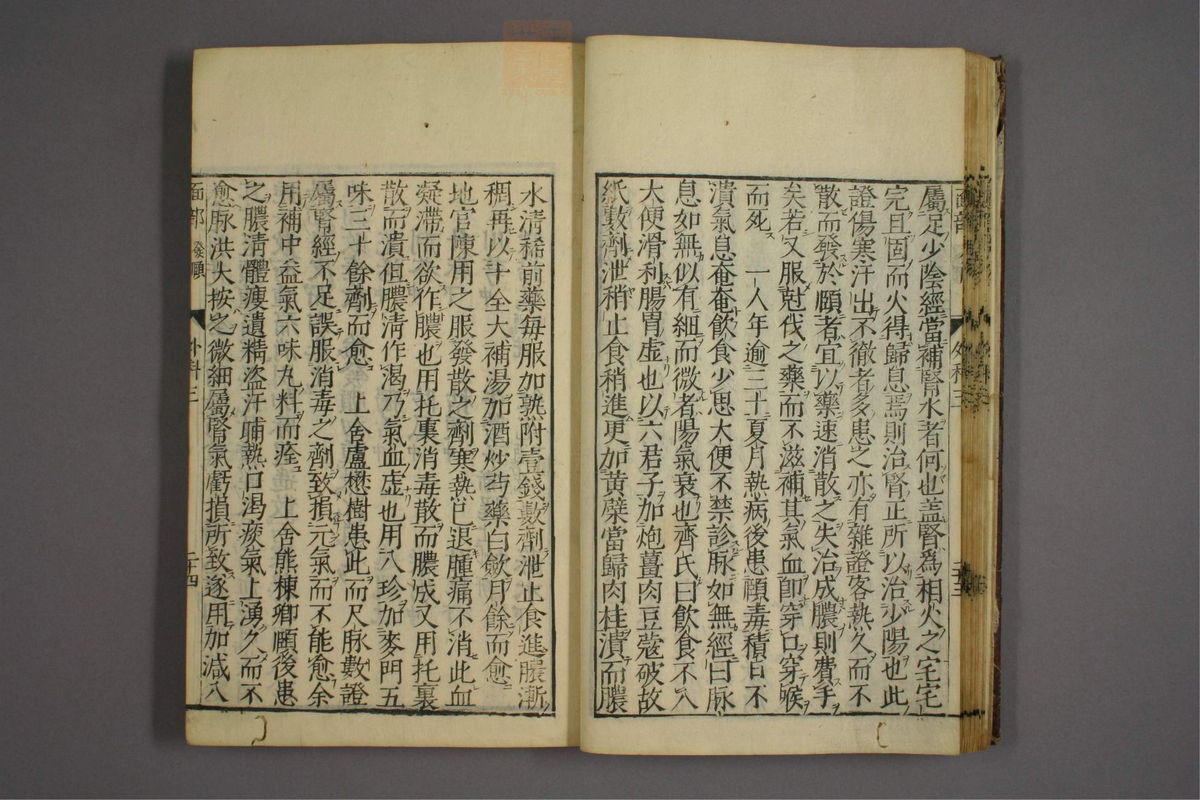 屬足少陰經當補腎水者何也盖腎爲相火之宅宅
完且固而火得歸息焉則治腎正所以治少陽也此
證傷寒汗出不徹者多患之亦有雜證客熱久而不
散而發於頤者宜以藥速消散之失治成膿則費手
矣若又服尅伐之藥而不滋補其氣血即穿口穿喉
而死 一人年逾三十夏月熱病後患頤毒積日不
潰氣息奄奄飲食少思大便不禁診脉如無經曰脉
息如無似有細而微者陽氣衰也齊氏曰飲食不入
大便滑利腸胃虛也以六君子加炮薑肉豆蔻破故
紙數劑泄稍止食稍進更加黃蘗當歸肉桂潰而膿
水清稀前藥每服加熟附壹錢數劑泄止食進膿漸
稠再以十全大補湯加酒炒芍藥白歛月餘而愈
地官陳用之服發散之劑寒熱已退腫痛不消此血
凝滯而欲作膿也用托裏消毒散而膿成又用托裏
散而潰但膿清作渴乃氣血虛也用八珍加麥門五
味三十餘劑而愈 上舍盧懋樹患此而尺脉數證
屬腎經不足誤服消毒之劑致損元氣而不能愈余
用補中益氣六味丸料而痊 上舍熊棟卿頤後患
之膿清體瘦遺精盜汗晡熱口渴痰氣上湧久而不
愈脉洪大按之微細屬腎氣虧損所致遂用加減八
面部 發頤 外科三 二十四